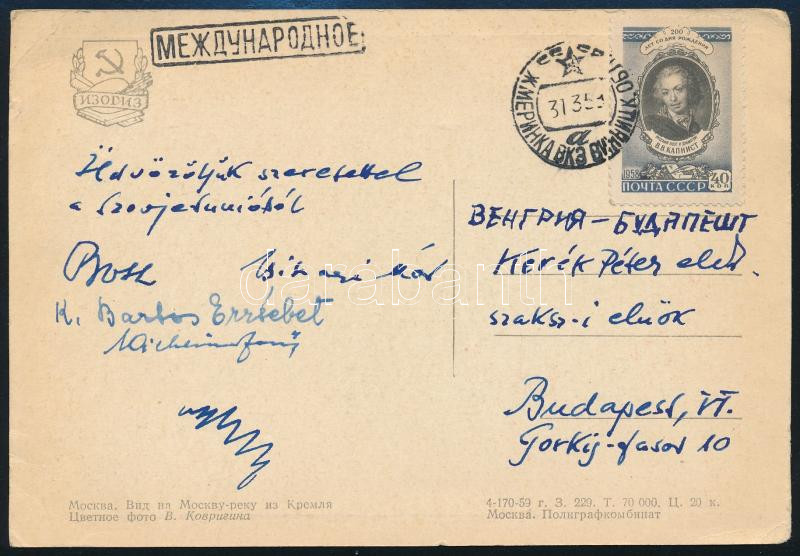 МЕЖДУНАРОДНОЕ
ИЗОГИЗ
200
ЛЕТ СО ДНЯ РОЖДЕНИЯ
В.В.КАПНИСТ
1958
40
КОП
ПОЧТА СССР
ЖМЕРИНКА ВКЗ
31 3 59
а
Üdvözöljük szeretettel
a Szovjetunióból
K. Bartos Erzsébet
ВЕНГРИЯ – БУДАПЕШТ
Kerék Péter
szaksz-i elnök
Budapest, VI.
Gorkij-fasor 10
darabanth
Москва. Вид на Москву-реку из Кремля
Цветное фото В. Ковригина
4-170-59 г. З. 229. Т. 70 000. Ц. 20 к.
Москва. Полиграфкомбинат